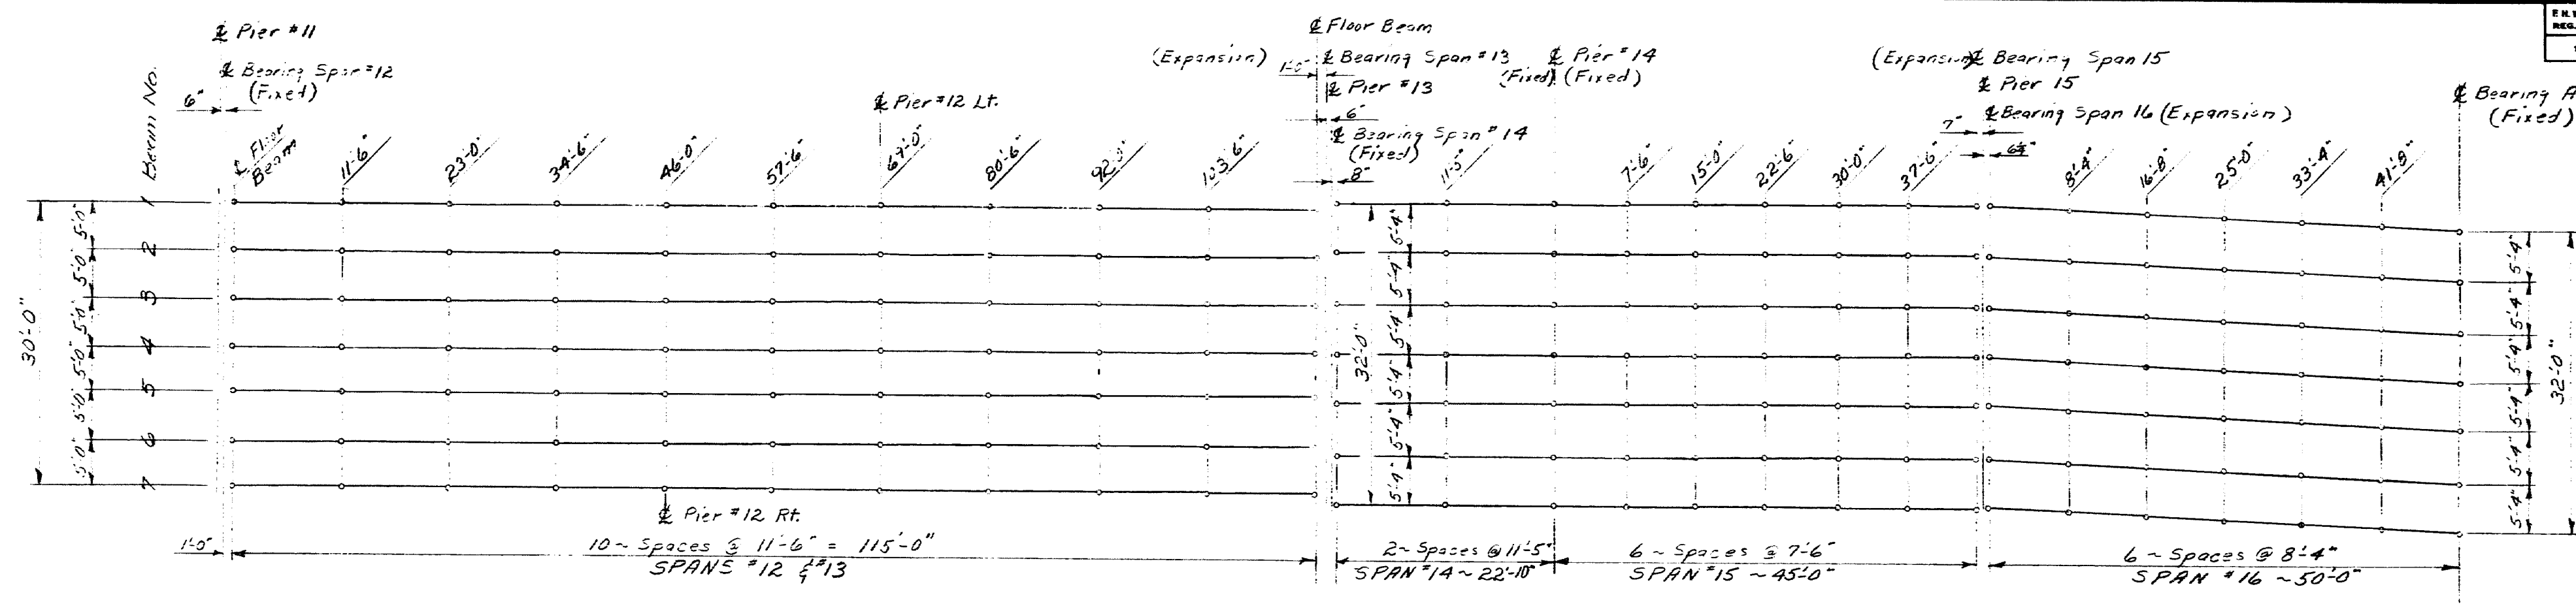 ℄ Pier #11
℄ Bearing Span #12
(Fixed)
6"
Beam No.
℄ Floor
Beam
11'-6"
23'-0"
34'-6"
46'-0"
57'-6"
69'-0"
80'-6"
92'-0"
103'-6"
℄ Pier #12 Lt.
℄ Floor Beam
(Expansion)
1'-0"
℄ Bearing Span #13
℄ Pier #13
6"
℄ Bearing Span #14
(Fixed)
8"
11'-5"
(Fixed)
℄ Pier #14
(Fixed)
7'-6"
15'-0"
22'-6"
30'-0"
37'-6"
(Expansion)
℄ Bearing Span 15
℄ Pier 15
℄ Bearing Span 16 (Expansion)
7"
8'-4"
16'-8"
25'-0"
33'-4"
41'-8"
℄ Bearing
(Fixed)
REG.
1
2
3
4
5
6
7
5'-0"
5'-0"
5'-0"
5'-0"
5'-0"
5'-0"
30'-0"
5'-4"
5'-4"
5'-4"
5'-4"
5'-4"
5'-4"
32'-0"
5'-4"
5'-4"
5'-4"
5'-4"
5'-4"
5'-4"
32'-0"
℄ Pier #12 Rt.
1'-0"
10 ~ Spaces @ 11'-6" = 115'-0"
SPANS #12 & #13
2 ~ Spaces @ 11'-5"
SPAN #14 ~ 22'-10"
6 ~ Spaces @ 7'-6"
SPAN #15 ~ 45'-0"
6 ~ Spaces @ 8'-4"
SPAN #16 ~ 50'-0"